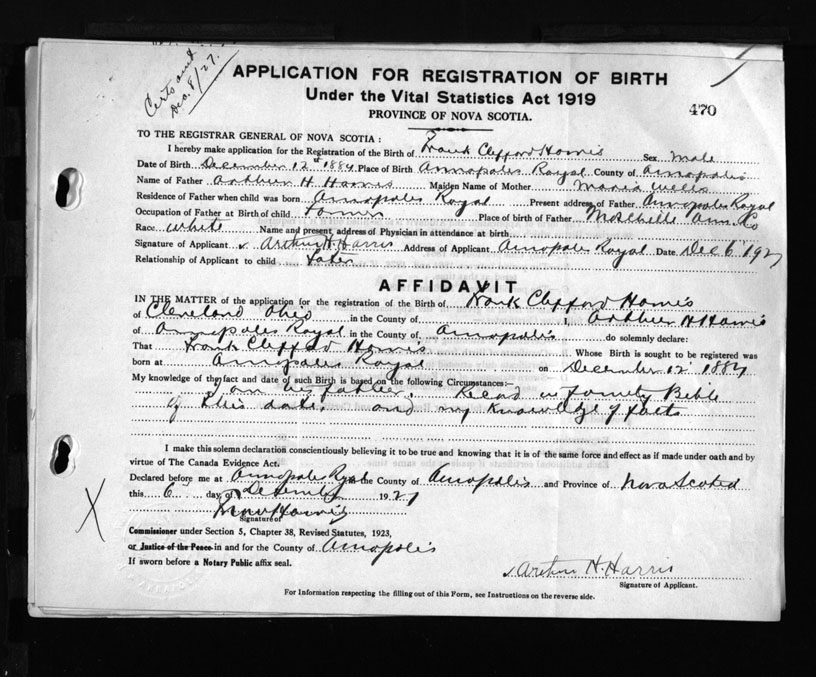 Certs sent
Dec. 8/27.
APPLICATION FOR REGISTRATION OF BIRTH
Under the Vital Statistics Act 1919
470
PROVINCE OF NOVA SCOTIA.
TO THE REGISTRAR GENERAL OF NOVA SCOTIA :
I hereby make application for the Registration of the Birth of Frank Clifford Harris Sex Male
Date of Birth December 12th 1884 Place of Birth Annapolis Royal County of Annapolis
Name of Father Arthur H. Harris Maiden Name of Mother Maria Wells
Residence of Father when child was born Annapolis Royal Present address of Father Annapolis Royal
Occupation of Father at Birth of child Farmer Place of birth of Father Moschelle Ann. Co
Race White Name and present address of Physician in attendance at birth
Signature of Applicant Arthur H. Harris Address of Applicant Annapolis Royal Date Dec 6 1927
Relationship of Applicant to child Father
AFFIDAVIT
IN THE MATTER of the application for the registration of the Birth of Frank Clifford Harris
of Cleveland Ohio in the County of I, Arthur H Harris
of Annapolis Royal in the County of Annapolis do solemnly declare:
That Frank Clifford Harris Whose Birth is sought to be registered was
born at Annapolis Royal on December 12 1884
My knowledge of the fact and date of such Birth is based on the following Circumstances:—
I am his father. Record in family Bible
of this date. and my knowledge of facts
I make this solemn declaration conscientiously believing it to be true and knowing that it is of the same force and effect as if made under oath and by
virtue of The Canada Evidence Act.
Declared before me at Annapolis Royal in the County of Annapolis and Province of Nova Scotia
this 6 day of December 1927
Harris
Signature of
Commissioner under Section 5, Chapter 38, Revised Statutes, 1923,
or Justice of the Peace in and for the County of Annapolis
If sworn before a Notary Public affix seal.
Arthur H. Harris
Signature of Applicant.
For Information respecting the filling out of this Form, see Instructions on the reverse side.